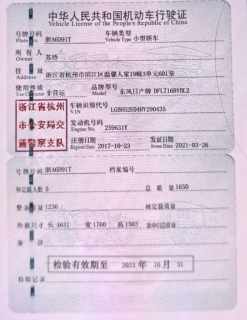 中华人民共和国机动车行驶证
Vehicle License of the People's Republic of China
号牌号码 浙A6D91T 车辆类型 小型轿车
Plate No. Vehicle Type
所有人 苏玲
Owner
住址 浙江省杭州市滨江区温馨人家19幢3单元601室
Address
使用性质 非营运 品牌型号 东风日产牌 DFL7168VBL2
Use Character Model
浙江省杭州
市公安局交
通警察支队
车辆识别代号 LGBH52E04HY290435
VIN
发动机号码 259631T
Engine No.
注册日期 2017-10-23 发证日期 2021-03-26
Register Date Issue Date
号牌号码 浙A6D91T 档案编号
核定载人数 5 总质量 1650
整备质量 1230 核定载质量
外廓尺寸 长 4631 宽 1760 高 1503 准牵引总质量
备注
检验有效期至 2023 年 10 月 31
检验记录